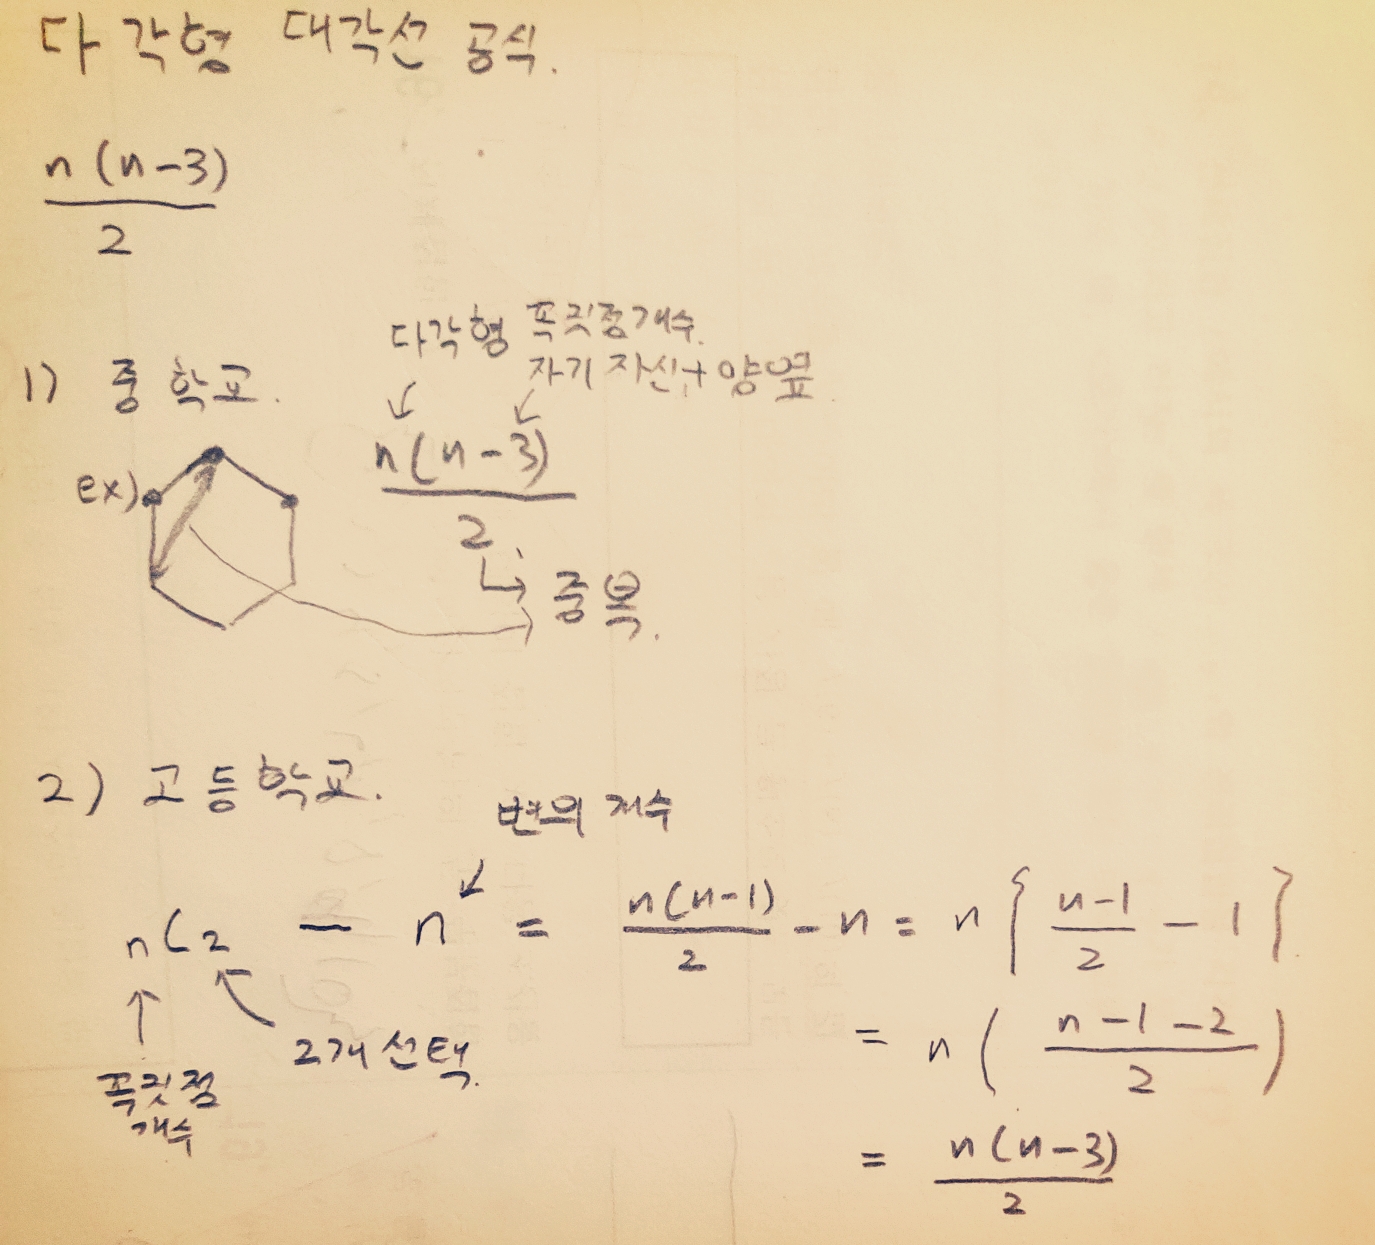 다각형 대각선 공식.
n(n-3)
2
1) 중학교.
다각형 꼭짓점개수.
자기 자신+양옆.
ex)
n(n-3)
2
중복.
2) 고등학교.
변의 개수
nC2 - n = n(n-1)/2 - n = n{n-1/2 - 1}
2개 선택.
꼭짓점
개수
= n(n-1-2/2)
= n(n-3)/2